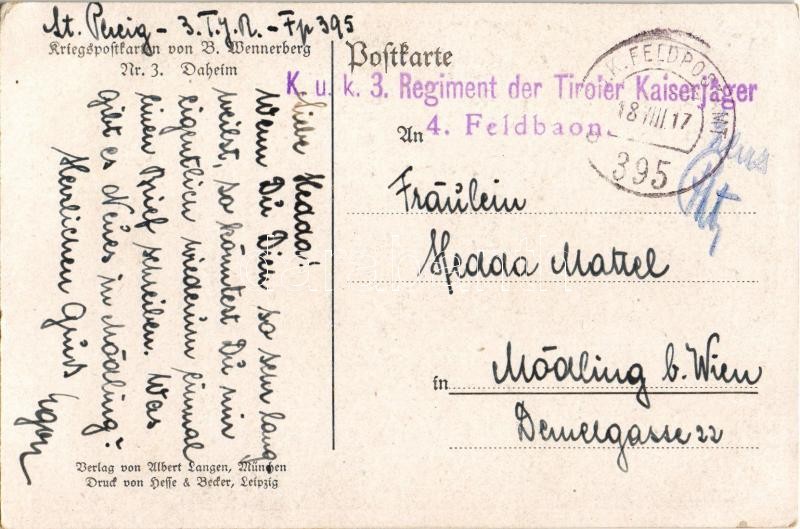 St. Pereig - 3. T.J.R. - Fp 395
Kriegspostkarten von B. Wennerberg
Nr. 3. Daheim
Liebe Hedda!
Wenn Du Dich so sehr lang
weilst, so könntest Du mir
eigentlich wiederum einmal
einen Brief schreiben. Was
gibt es Neues in Mödling?
Herzlichen Gruß
Egon
Verlag von Albert Langen, München
Druck von Hesse & Becker, Leipzig
Postkarte
K. u. k. 3. Regiment der Tiroler Kaiserjäger
4. Feldbaon
K. FELDPOSTAMT
18 VIII. 17
395
An
Fräulein
Hedda Mattel
in Mödling b. Wien
Demelgasse 22